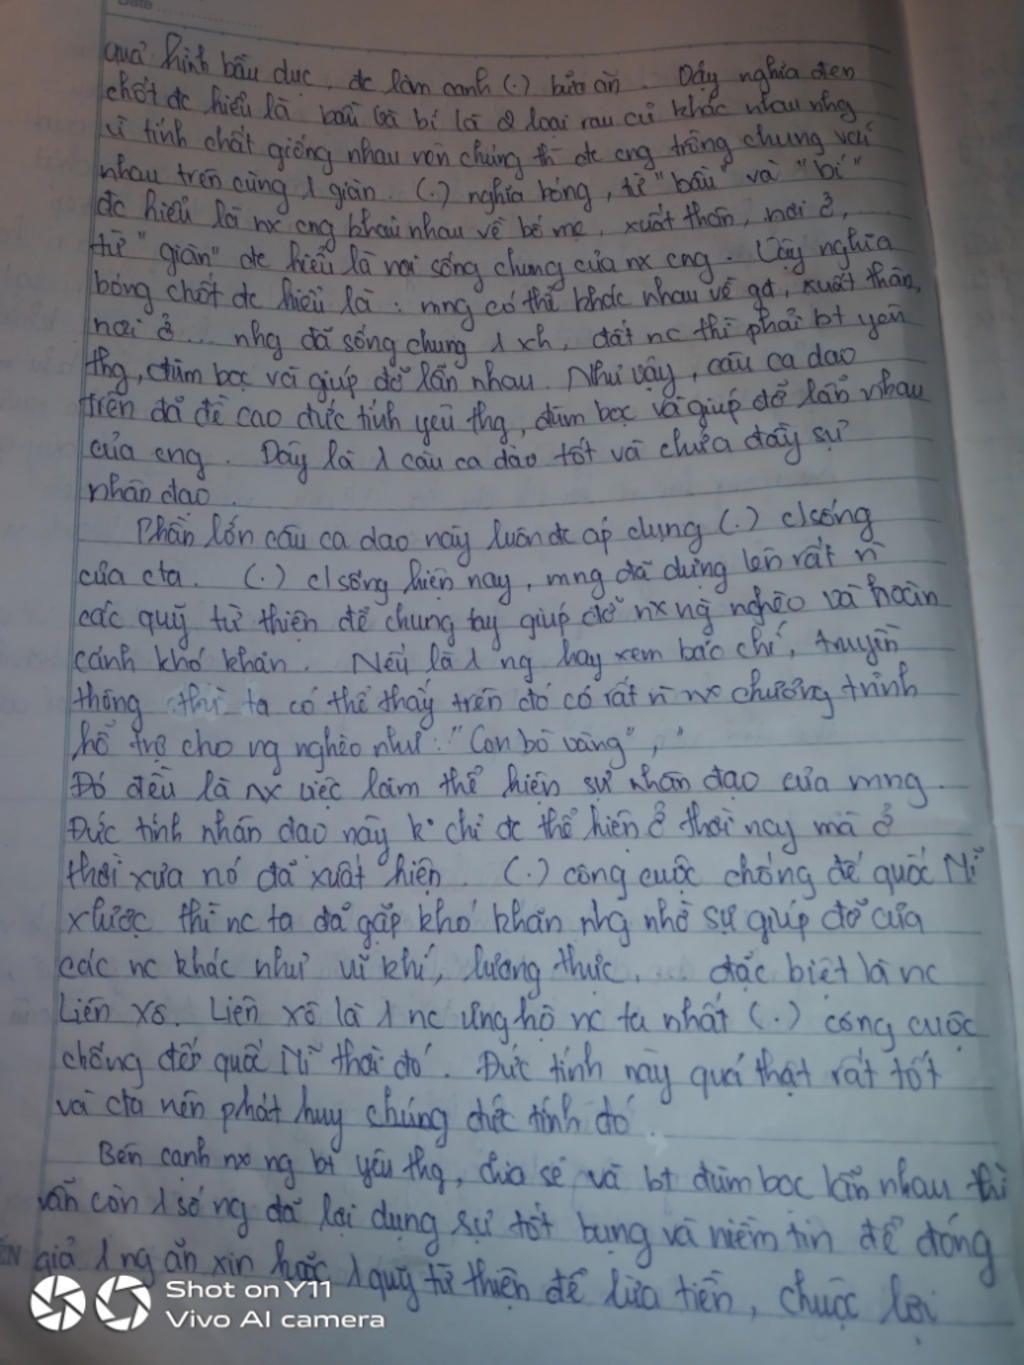 Date
quả hình bầu dục, đc làm canh (.) bữa ăn. Vậy nghĩa đen
chốt đc hiểu là bầu và bí là 2 loại rau củ khác nhau nhg
vì tính chất giống nhau nên chúng thì đc cng trồng chung với
nhau trên cùng 1 giàn. (.) nghĩa bóng, từ "bầu" và "bí"
đc hiểu là nx cng khác nhau về bố mẹ, xuất thân, nơi ở,
từ "giàn" đc hiểu là nơi sống chung của nx cng. Vậy nghĩa
bóng chốt đc hiểu là: mng có thể khác nhau về gđ, xuất thân,
nơi ở... nhg đã sống chung 1 xh, đất nc thì phải bt yêu
thg, đùm bọc và giúp đỡ lẫn nhau. Như vậy, câu ca dao
trên đã đề cao đức tính yêu thg, đùm bọc và giúp đỡ lẫn nhau
của cng. Đây là 1 câu ca dao tốt và chứa đầy sự
nhân đạo.
Phần lớn câu ca dao này luôn đc áp dụng (.) c/sống
của cta. (.) c/sống hiện nay, mng đã dựng lên rất n`
các quỹ từ thiện để chung tay giúp đỡ nx ng nghèo và hoàn
cảnh khó khăn. Nếu là 1 ng hay xem báo chí, truyền
thông thì ta có thể thấy trên đó có rất n` nx chương trình
hỗ trợ cho ng nghèo như: "Con bò vàng", "
Đó đều là nx việc làm thể hiện sự nhân đạo của mng.
Đức tính nhân đạo này k° chỉ đc thể hiện ở thời nay mà ở
thời xưa nó đã xuất hiện. (.) công cuộc chống đế quốc Mĩ
xlược thì nc ta đã gặp khó khăn nhg nhờ sự giúp đỡ của
các nc khác như vũ khí, lương thực, ... đặc biệt là nc
Liên Xô. Liên xô là 1 nc ủng hộ nc ta nhất (.) công cuộc
chống đế quốc Mĩ thời đó. Đức tính này quả thật rất tốt
và cta nên phát huy chúng đức tính đó.
Bên cạnh nx ng bt yêu thg, chia sẻ và bt đùm bọc lẫn nhau thì
vẫn còn 1 số ng đã lợi dụng sự tốt bụng và niềm tin để đóng
giả 1 ng ăn xin hoặc 1 quỹ từ thiện để lừa tiền, chuộc lợi
Shot on Y11
Vivo AI camera